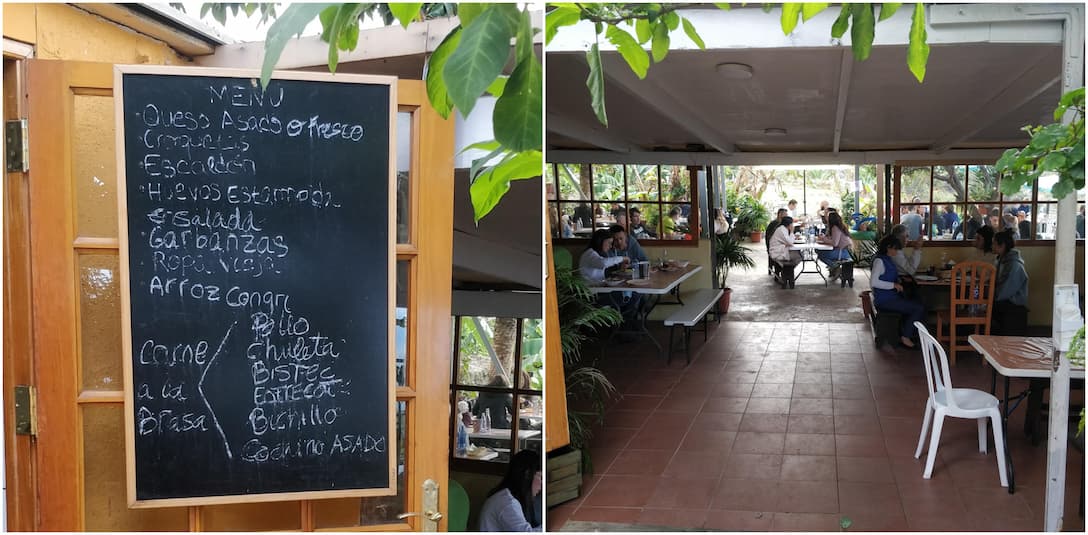 MENU
Queso Asado o fresco
Croquetas
Escaldón
Huevos Estampida
Ensalada
Garbanzas
Ropa Vieja
Arroz Congri
Carne a la Brasa
Pollo
Chuleta
BISTEC
ENTRECOT
Bichillo
Cochino ASADO